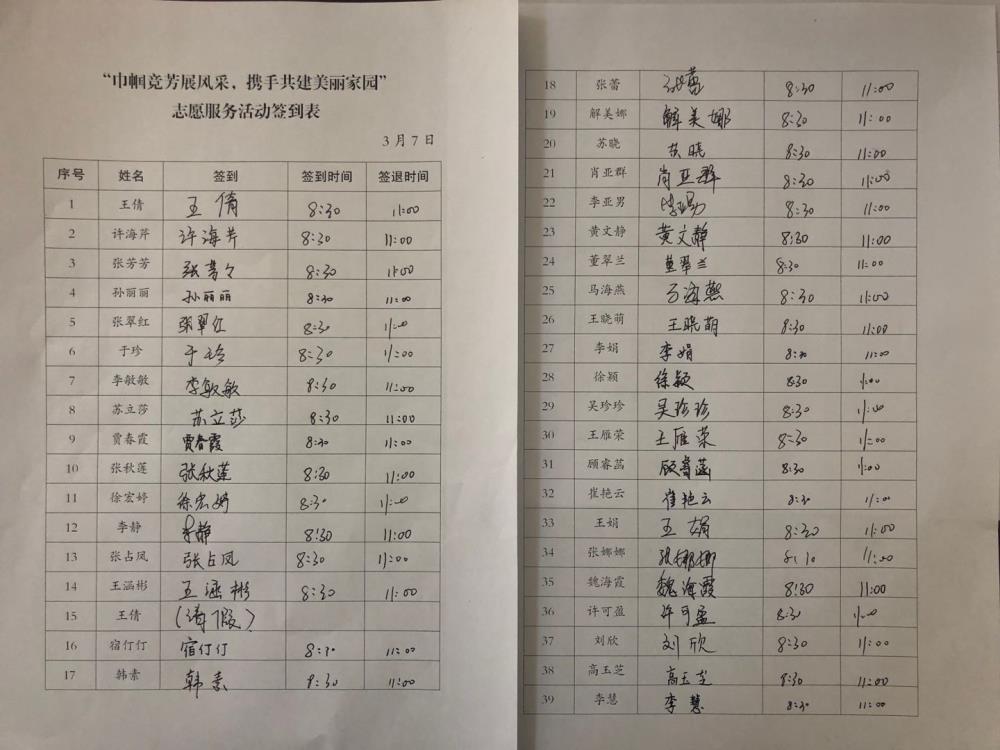 “巾帼竞芳展风采，携手共建美丽家园”
志愿服务活动签到表
3月7日
序号 姓名 签到 签到时间 签退时间
1 王倩 王倩 8:30 11:00
2 许海芹 许海芹 8:30 11:00
3 张芳芳 张芳々 8:30 11:00
4 孙丽丽 孙丽丽 8:30 11:00
5 张翠红 张翠红 8:30 11:00
6 于珍 于珍 8:30 11:00
7 李敏敏 李敏敏 8:30 11:00
8 苏立莎 苏立莎 8:30 11:00
9 贾春霞 贾春霞 8:30 11:00
10 张秋莲 张秋莲 8:30 11:00
11 徐宏婷 徐宏婷 8:30 11:00
12 李静 李静 8:30 11:00
13 张占凤 张占凤 8:30 11:00
14 王涵彬 王涵彬 8:30 11:00
15 王倩 (请假)
16 宿仃仃 宿仃仃 8:30 11:00
17 韩素 韩素 8:30 11:00
18 张蕾 张蕾 8:30 11:00
19 解美娜 解美娜 8:30 11:00
20 苏晓 苏晓 8:30 11:00
21 肖亚群 肖亚群 8:30 11:00
22 李亚男 李亚男 8:30 11:00
23 黄文静 黄文静 8:30 11:00
24 董翠兰 董翠兰 8:30 11:00
25 马海燕 马海燕 8:30 11:00
26 王晓萌 王晓萌 8:30 11:00
27 李娟 李娟 8:30 11:00
28 徐颖 徐颖 8:30 11:00
29 吴珍珍 吴珍珍 8:30 11:00
30 王雁荣 王雁荣 8:30 11:00
31 顾睿菡 顾睿菡 8:30 11:00
32 崔艳云 崔艳云 8:30 11:00
33 王娟 王娟 8:30 11:00
34 张娜娜 张娜娜 8:30 11:00
35 魏海霞 魏海霞 8:30 11:00
36 许可盈 许可盈 8:30 11:00
37 刘欣 刘欣 8:30 11:00
38 高玉芝 高玉芝 8:30 11:00
39 李慧 李慧 8:30 11:00